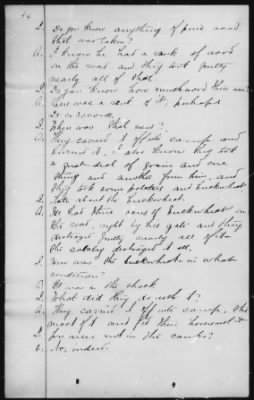 Q. Do you know anything of pine wood
that was taken?
A. I know he had a rank of wood
on the road and they took pretty
nearly all of that.
Q. Do you know how much wood him
A. There was a rank of it, perhaps
Q. When was that used?
A. They carried it off into camp and
burned it, I also know they took
a great deal of grain and one
thing and another from him, and
they took some potatoes and buckwheat
Q. State about the buckwheat.
A. He had three acres of buckwheat on
the road, right by his gate and they
destroyed pretty nearly all of it
the cavalry destroyed it all.
Q. How was the buckwheat in what
condition?
A. It was in the shock
Q. What did they do with it?
A. They carried it off into camp, the
most of it and fed their horses on it
Q. You were not in the camp?
A. No, indeed.